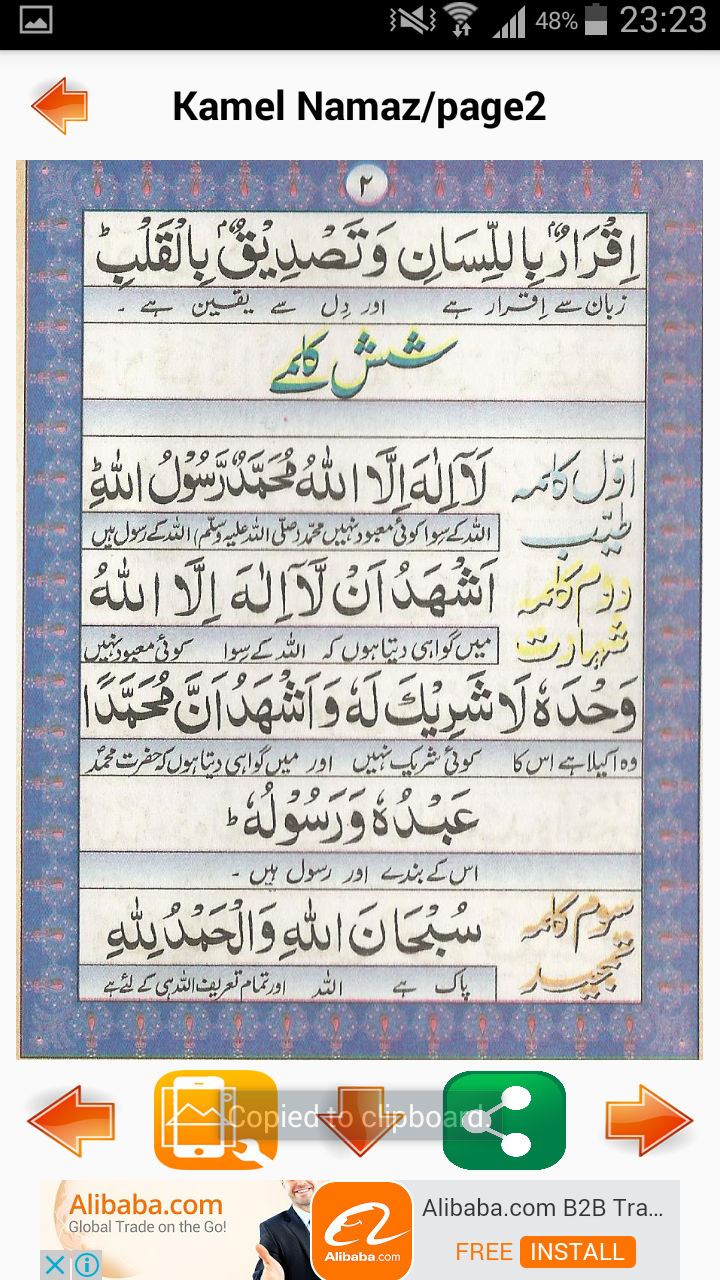 23:23
48%
Kamel Namaz/page2
٢
اِقْرَارٌۢ بِاللِّسَانِ وَتَصْدِيْقٌۢ بِالْقَلْبِ ؕ
زبان سے اِقرار ہے اور دِل سے یقین ہے ۔
شش کلمے
اوّل کلمہ طیّب
لَآ اِلٰهَ اِلَّا اللّٰهُ مُحَمَّدٌ رَّسُوْلُ اللّٰهِ ؕ
اللہ کے سِوا کوئی معبود نہیں محمّد (صلّی اللہ علیہ وسلّم) اللہ کے رسول ہیں
دوم کلمہ شہادت
اَشْهَدُ اَنْ لَّآ اِلٰهَ اِلَّا اللّٰهُ
میں گواہی دیتا ہوں کہ اللہ کے سِوا کوئی معبود نہیں
وَحْدَهٗ لَا شَرِيْكَ لَهٗ وَاَشْهَدُ اَنَّ مُحَمَّدًا
وہ اکیلا ہے اس کا کوئی شریک نہیں اور میں گواہی دیتا ہوں کہ حضرت محمدؐ
عَبْدُهٗ وَرَسُوْلُهٗ ؕ
اس کے بندے اور رسول ہیں ۔
سوم کلمہ تمجید
سُبْحَانَ اللّٰهِ وَالْحَمْدُ لِلّٰهِ
پاک ہے اللہ اور تمام تعریف اللہ ہی کے لئے ہے
Copied to clipboard.
Alibaba.com
Global Trade on the Go!
Alibaba.com
Alibaba.com B2B Tra...
FREE INSTALL